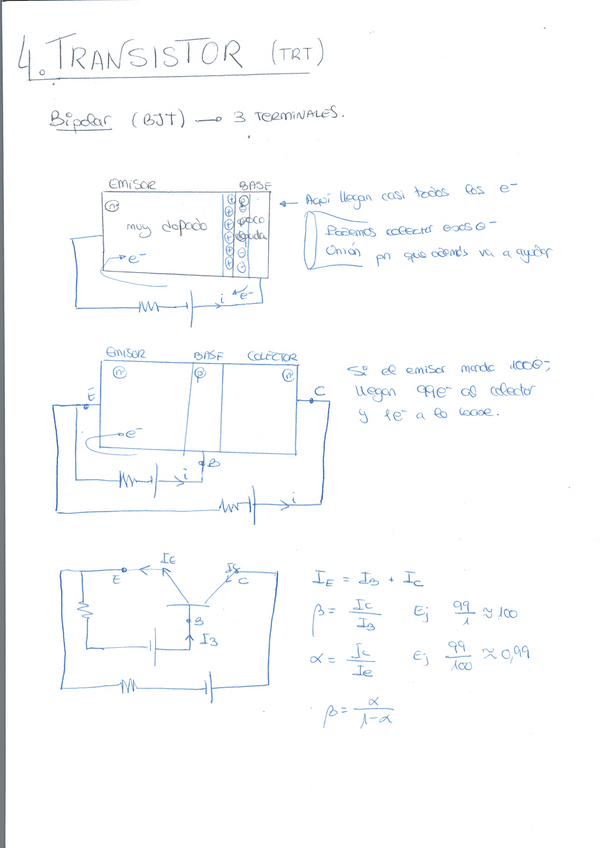 4. TRANSISTOR (TRT)
Bipolar (BJT) → 3 TERMINALES.
EMISOR BASE
n p
muy dopado poco
dopada
← Aquí llegan casi todos los e-
Podemos colector esos e-
Unión pn que además va a ayudar
e-
i e-
EMISOR BASE COLECTOR
n p n
E C
e-
B
i
i
Si el emisor manda 100e-,
llegan 99e- al colector
y 1e- a la base.
IE
E
C
B
IB
IE = IB + IC
β = IC / IB Ej 99/1 ≈ 100
α = IC / Ie Ej 99/100 ≈ 0,99
β = α / 1-α